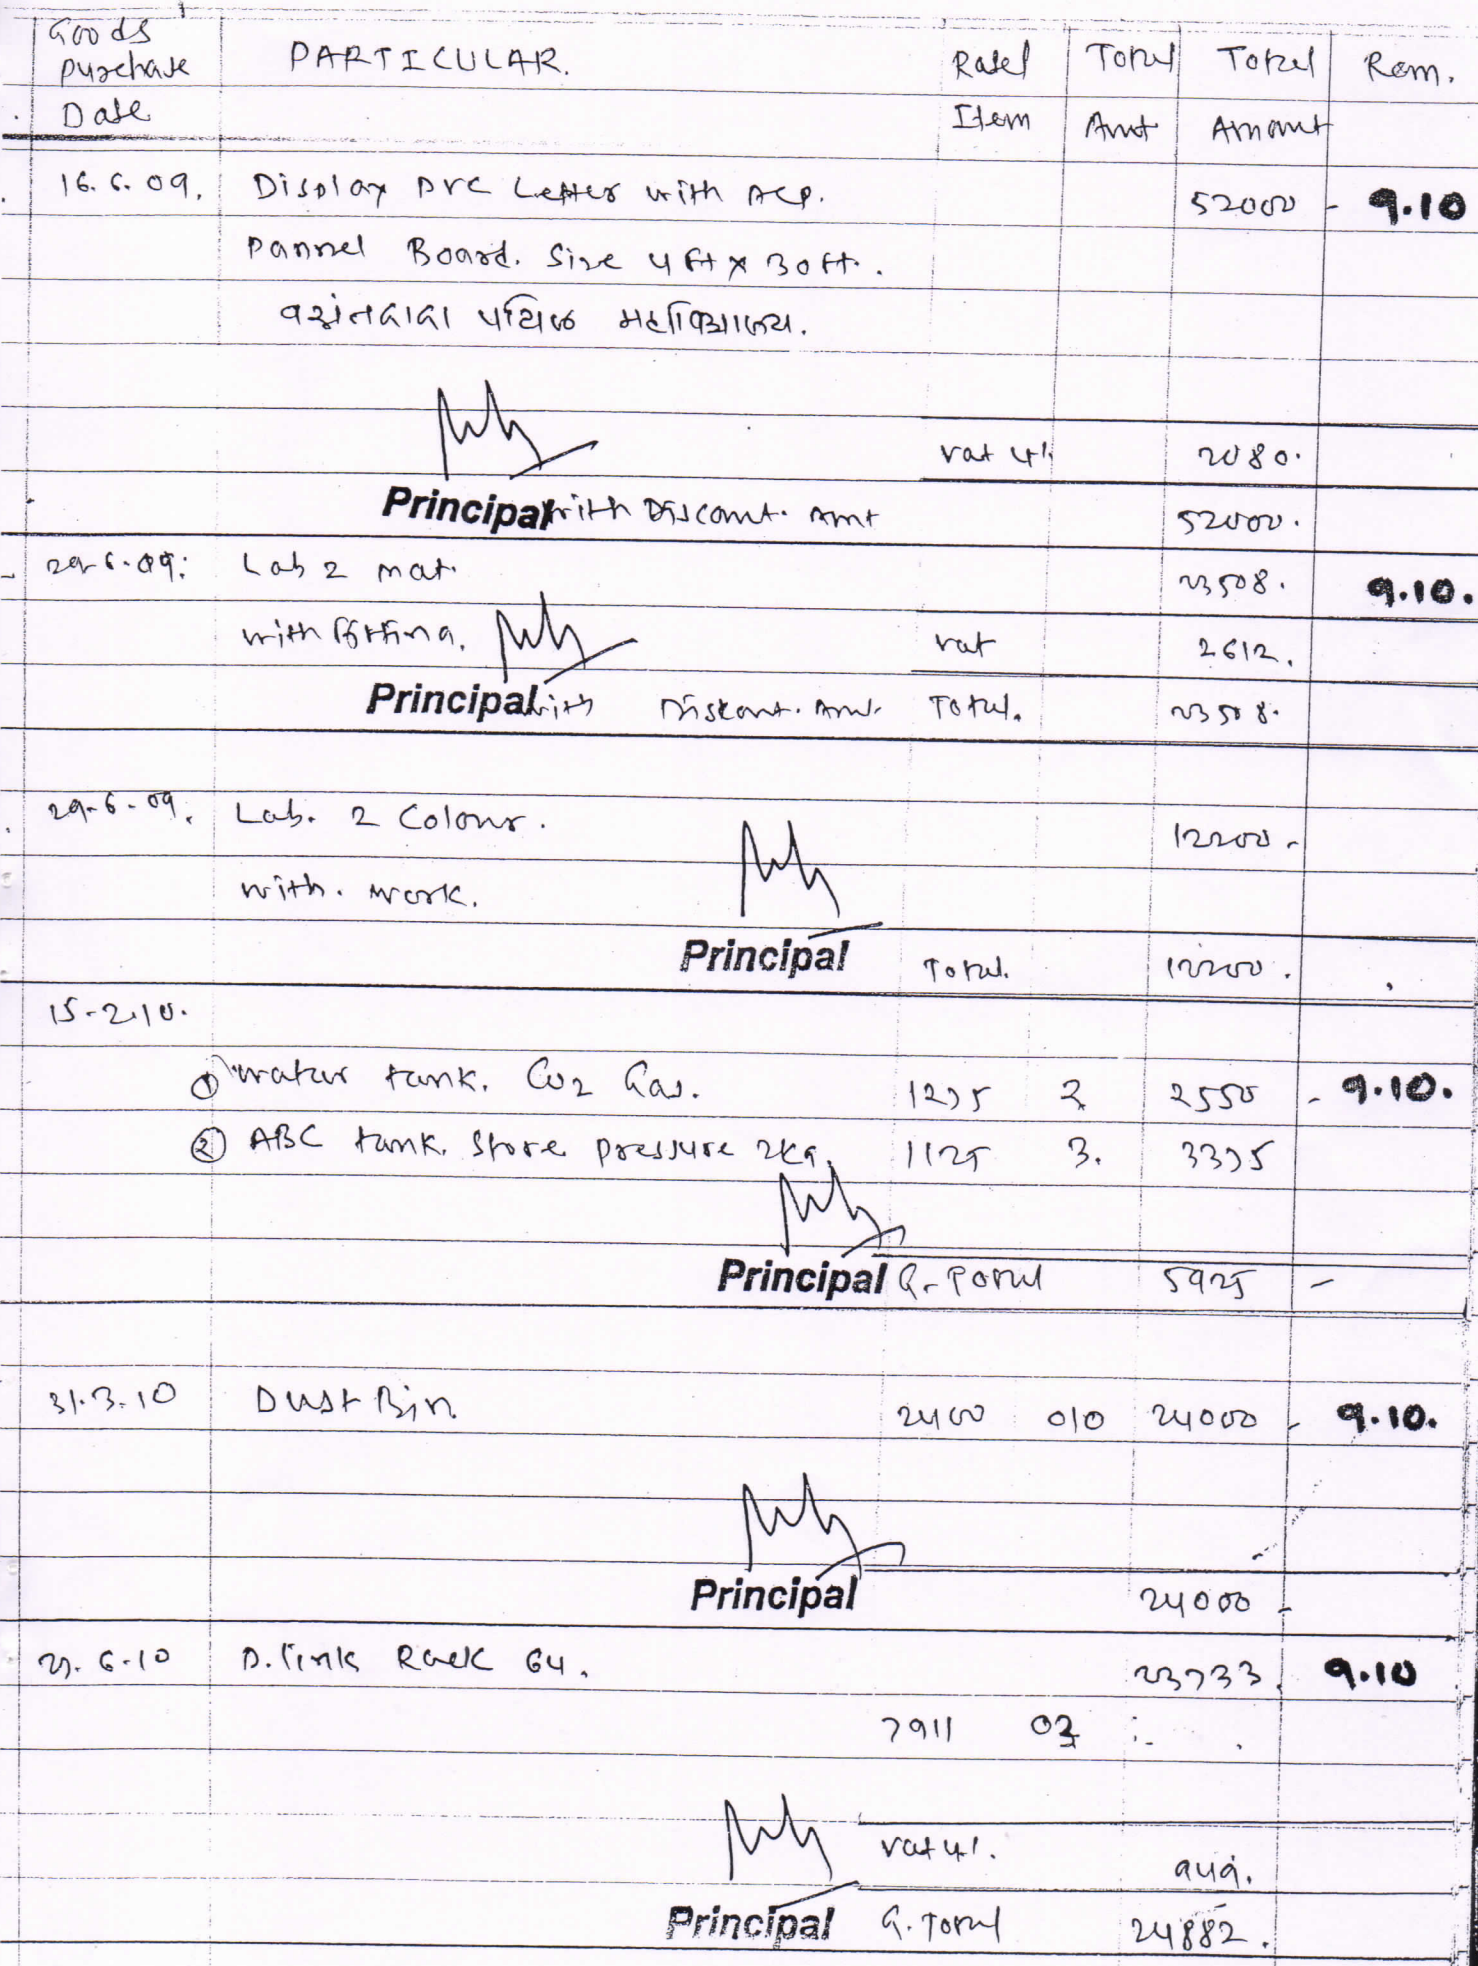 Goods PARTICULAR. Rate/ Total Total Rem.
purchase
Date Item Amt Amount
16.6.09. Display PVC Letter with ACP. 52000 - 9.10
Pannel Board. Size 4 ft x 30 ft.
મહાવિદ્યાલય.
vat 4% 2080.
Principal with Discount. Amt 52000.
29.6.09. Lab 2 mat. 23508. 9.10.
with fitting. vat 2612.
Principal with Discount. Amt. Total. 23508.
29-6-09. Lab. 2 Colour. 12200 -
with. work.
Principal Total. 12200.
15-2.10.
① water tank. CO2 Gas. 1275 2 2550 - 9.10.
② ABC tank. Store pressure 2kg. 1125 3. 3375
Principal G. Total 5925 -
31.3.10 Dust Bin 2400 010 24000 - 9.10.
Principal 24000 -
6-10 D.link Rack 6U. 23733. 9.10
7911 03
vat 4%. 949.
Principal G. Total 24882.